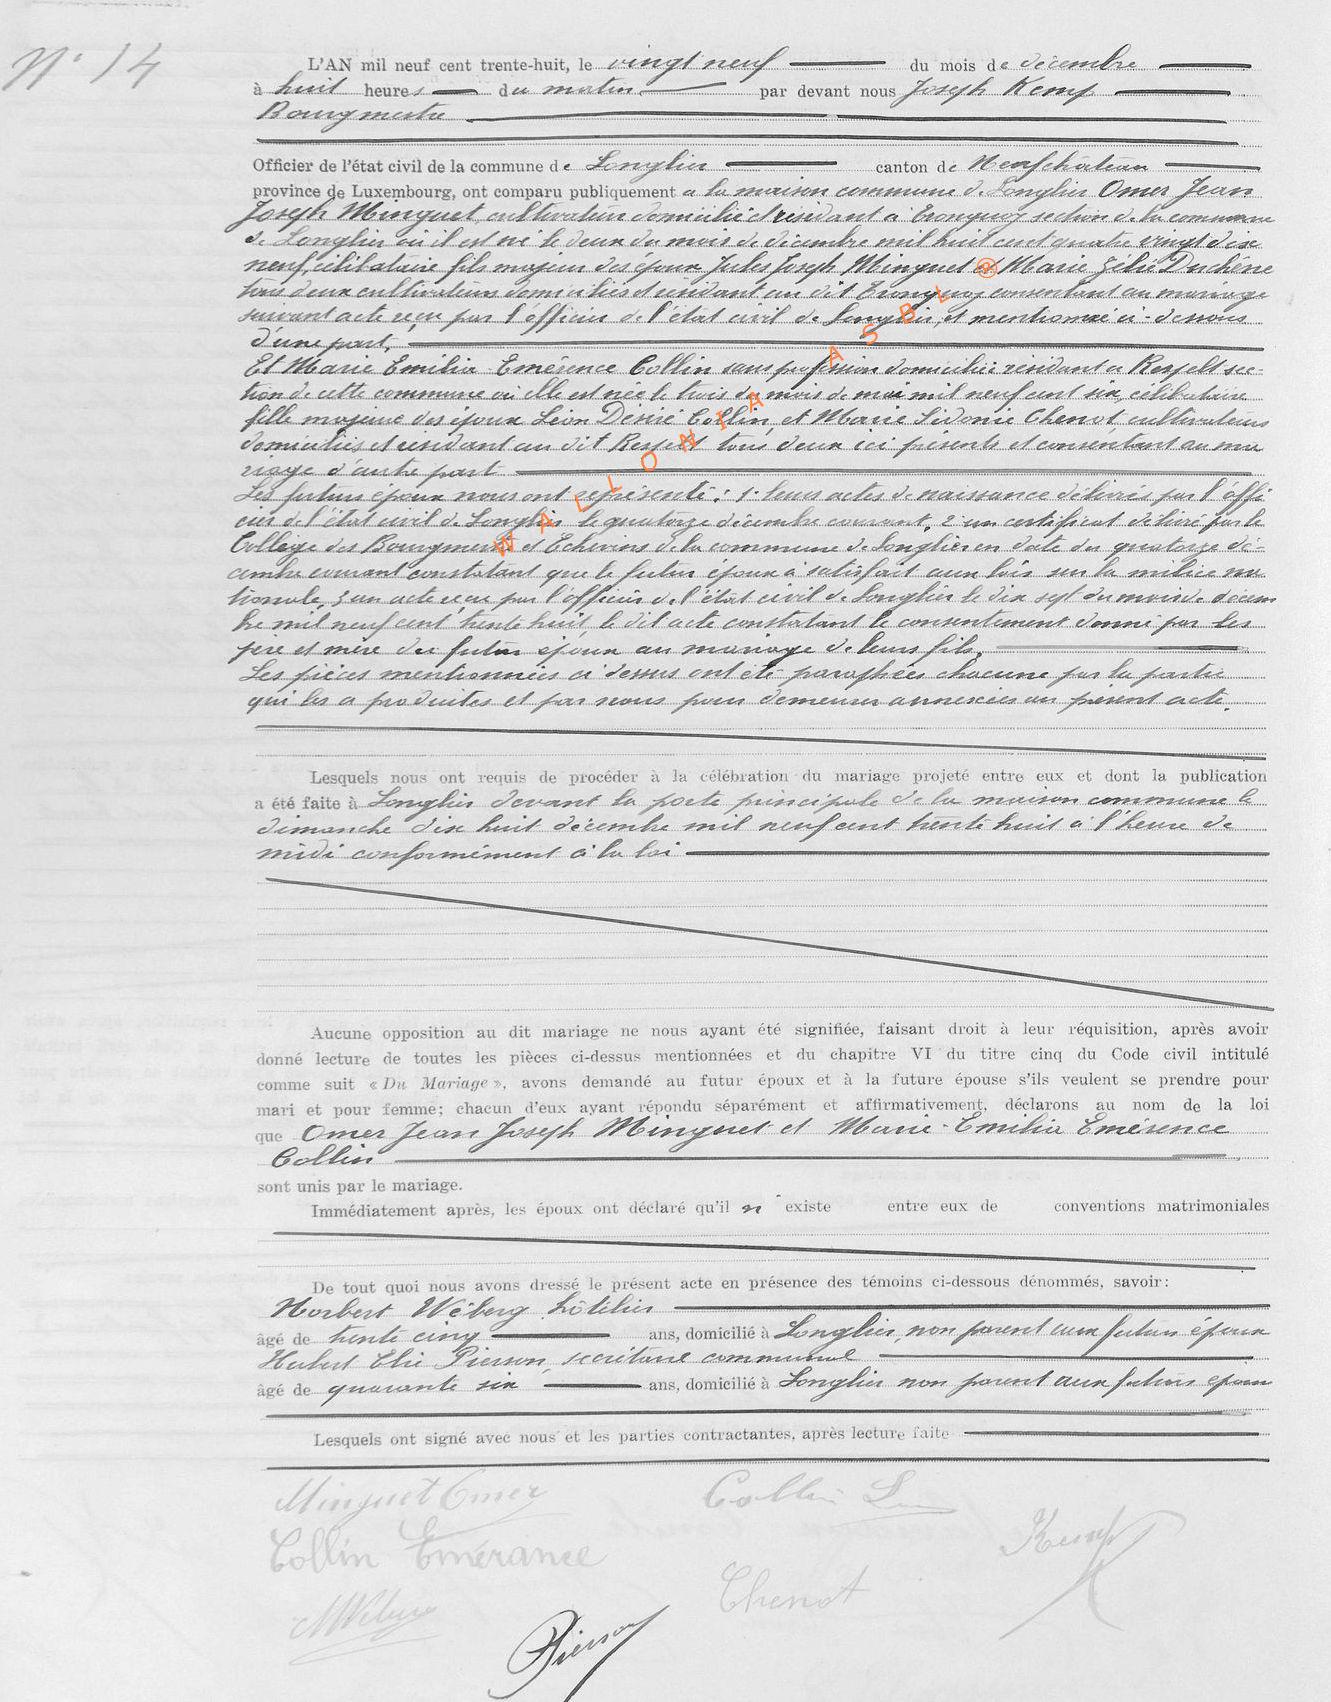 N° 14
L'AN mil neuf cent trente-huit, le vingt neuf du mois de décembre
à huit heures du matin par devant nous Joseph Kemp
Bourgmestre
Officier de l'état civil de la commune de Longlier canton de Neufchâteau
province de Luxembourg, ont comparu publiquement a la maison commune de Longlier Omer Jean
Joseph Minguet, cultivateur domicilié et résidant à Tronquoy section de la commune
de Longlier où il est né le deux du mois de décembre mil huit cent quatre vingt dix
neuf, célibataire fils majeur des époux Jules Joseph Minguet & Marie Zélie Duchêne
tous deux cultivateurs domiciliés et résidant au dit Tronquoy consentant au mariage
suivant acte reçu par l'officier de l'état civil de Longlier, et mentionné ci-dessous
d'une part,
Et Marie Emilia Emérence Collin sans profession domiciliée résidant a Respelt sec-
tion de cette commune où elle est née le trois du mois de mai mil neuf cent six, célibataire
fille majeure des époux Léon Désiré Collin, et Marie Sidonie Chenot, cultivateurs
domiciliés et résidant au dit Respelt tous deux ici présents et consentant au ma
riage d'autre part
Les futurs époux nous ont représenté : 1° leurs actes de naissance délivrés par l'offi
cier de l'état civil de Longlier le quatorze décembre courant, 2° un certificat délivré par le
Collège des Bourgmestre et Echevins de la commune de Longlier en date du quatorze dé-
cembre courant constatant que le futur époux a satisfait aux lois sur la milice na
tionale, 3 un acte reçu par l'officier de l'état civil de Longlier le dix sept du mois de décem
bre mil neuf cent trente huit, le dit acte constatant le consentement donné par les
père et mère du futur époux au mariage de leurs fils.
Les pièces mentionnées ci dessus ont été paraphées chacune par la partie
qui les a produites et par nous pour demeurer annexées au présent acte.
Lesquels nous ont requis de procéder à la célébration du mariage projeté entre eux et dont la publication
a été faite à Longlier devant la porte principale de la maison commune le
dimanche dix huit décembre mil neuf cent trente huit à l'heure de
midi conformément à la loi
Aucune opposition au dit mariage ne nous ayant été signifiée, faisant droit à leur réquisition, après avoir
donné lecture de toutes les pièces ci-dessus mentionnées et du chapitre VI du titre cinq du Code civil intitulé
comme suit « Du Mariage », avons demandé au futur époux et à la future épouse s'ils veulent se prendre pour
mari et pour femme; chacun d'eux ayant répondu séparément et affirmativement, déclarons au nom de la loi
que Omer Jean Joseph Minguet et Marie-Emilia Emérence
Collin
sont unis par le mariage.
Immédiatement après, les époux ont déclaré qu'il n' existe entre eux de conventions matrimoniales
De tout quoi nous avons dressé le présent acte en présence des témoins ci-dessous dénommés, savoir:
Norbert Wéberg hôtelier
âgé de trente cinq ans, domicilié à Longlier, non parent aux futurs époux
Hubert Elie Pierson, secrétaire communal
âgé de quarante six ans, domicilié à Longlier non parent aux futurs époux
Lesquels ont signé avec nous et les parties contractantes, après lecture faite
Minguet Omer Collin L
Collin Emérance Kemp
Chenot
Pierson
WALLONIA ASBL ®